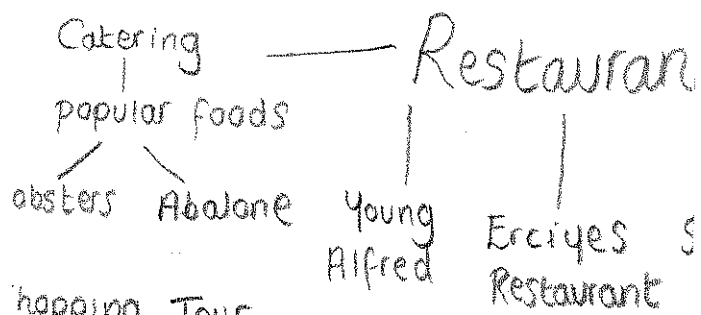 Catering
Restauran
popular foods
obsters Abalone
Young Alfred
Erciyes Restaurant
hopping Tour